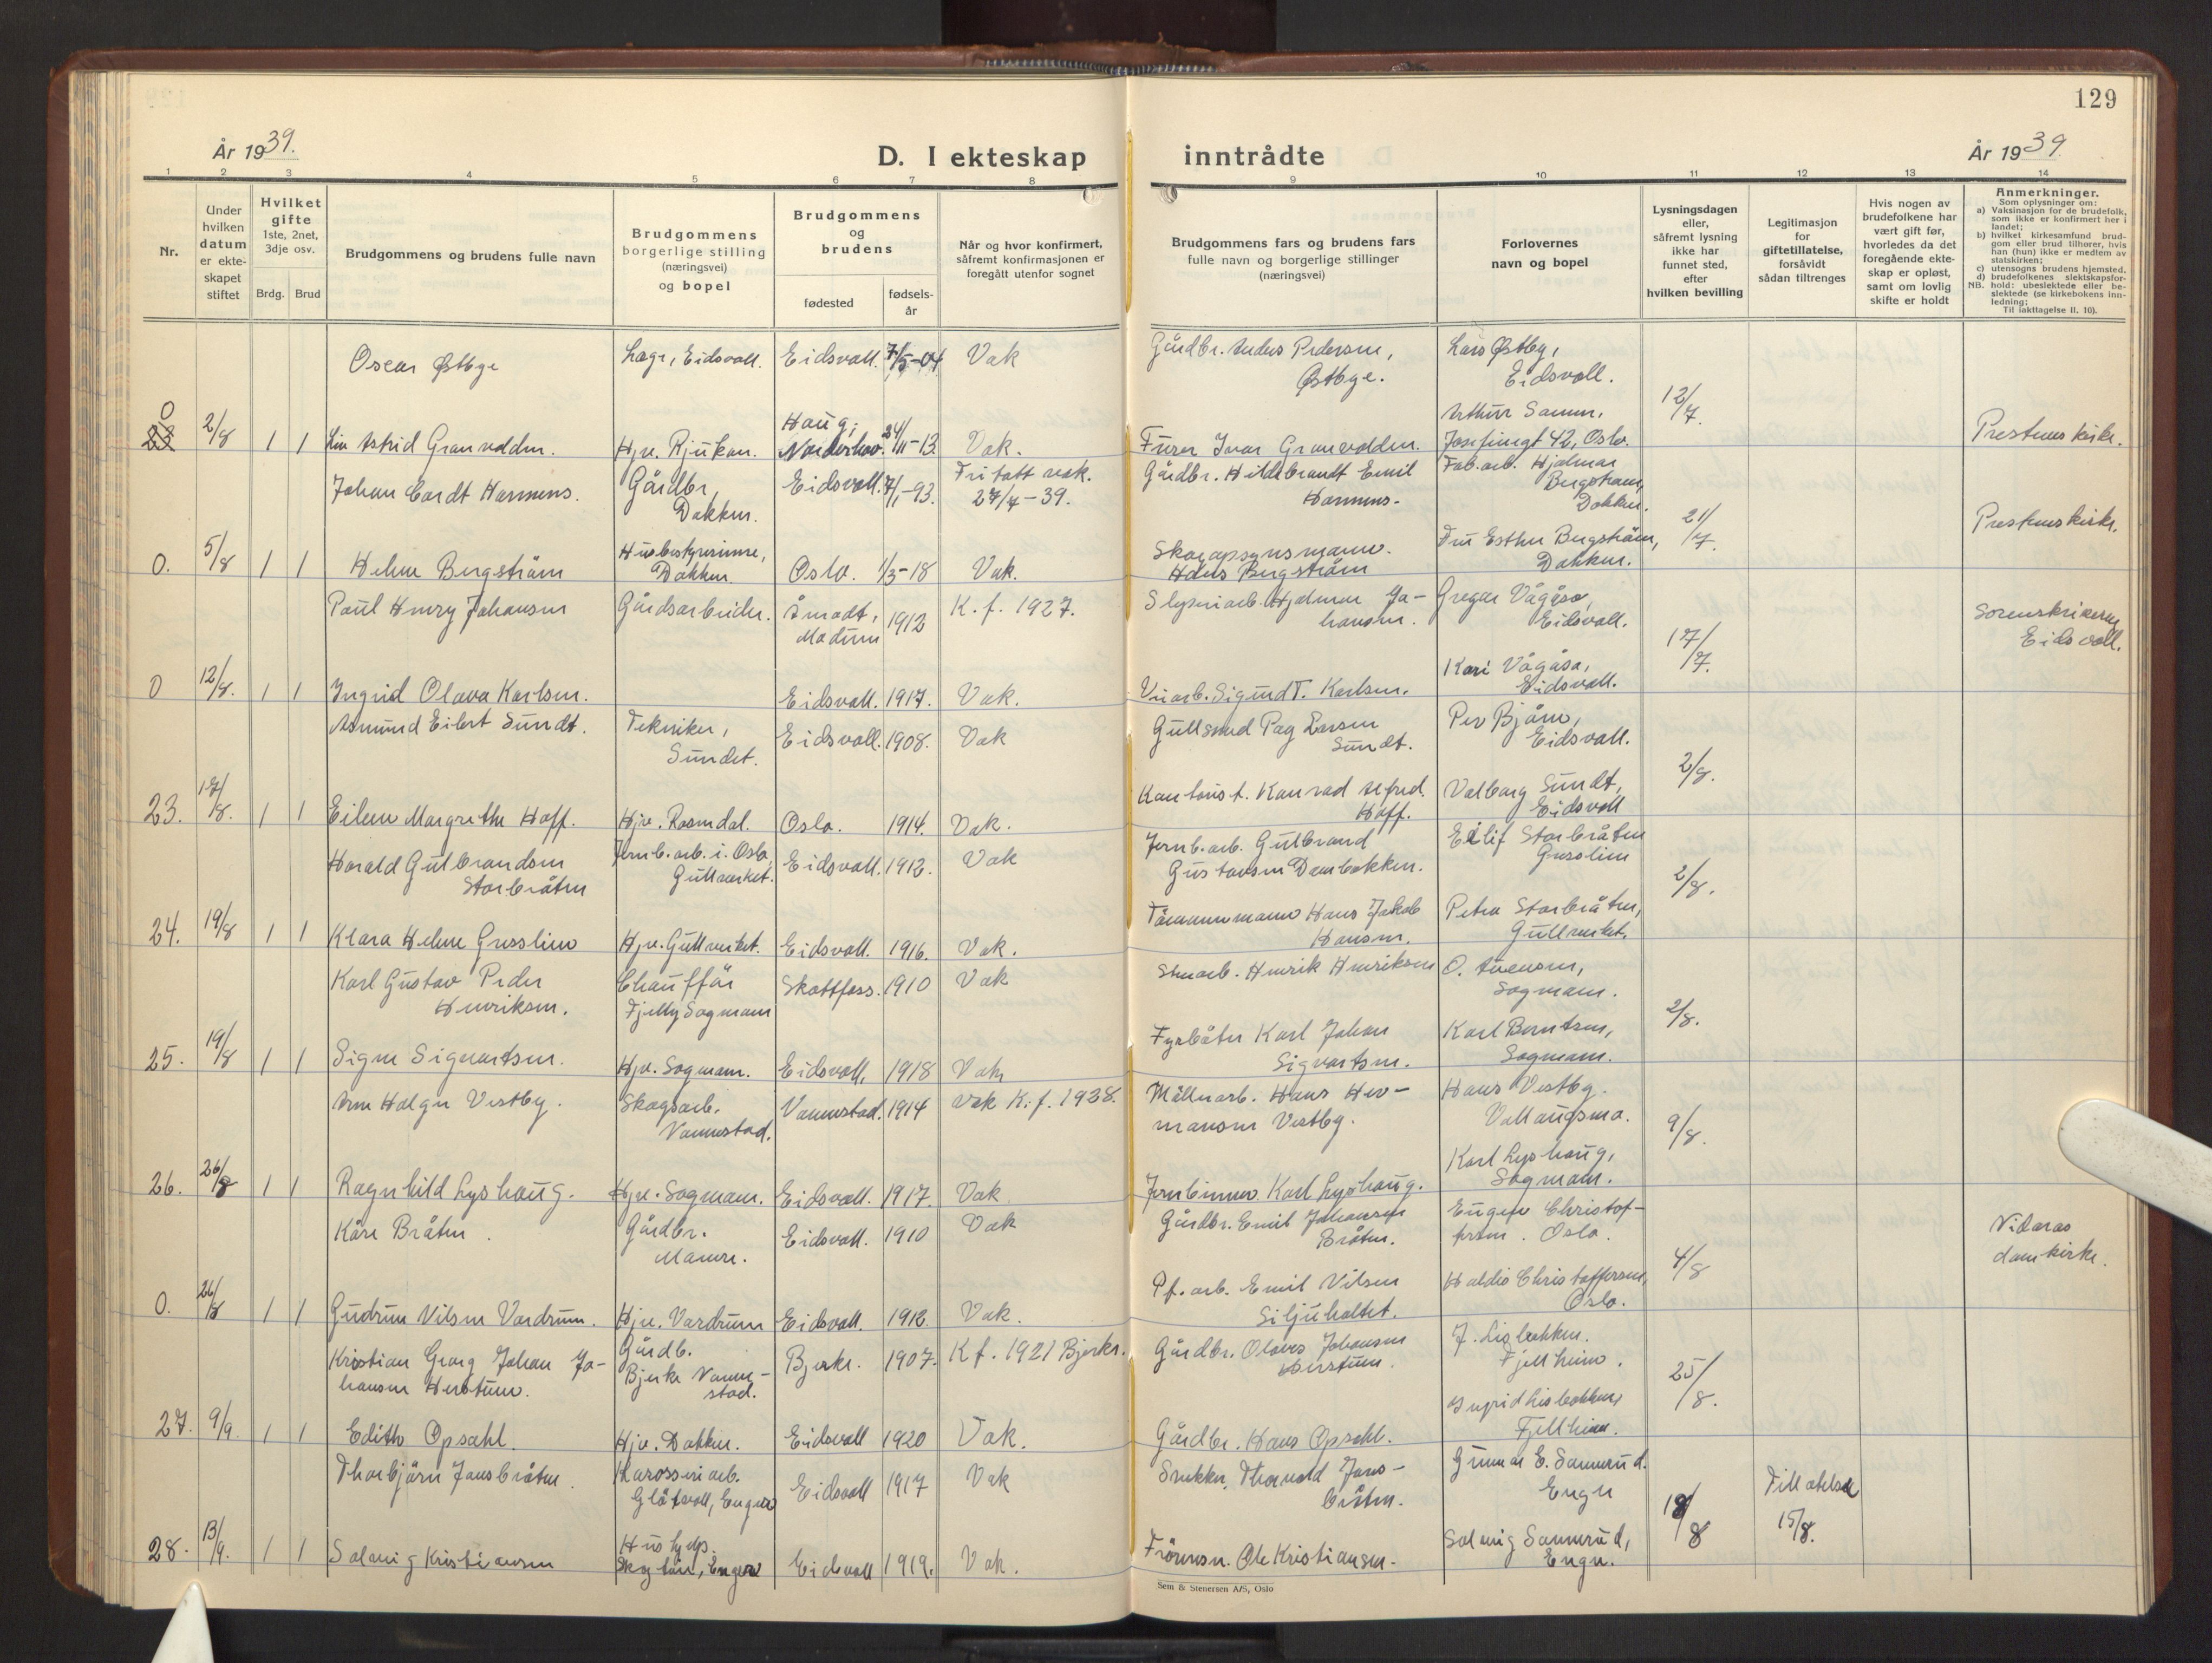 129
År 1939.
D. I ekteskap inntrådte
År 1939.
1 2 3 4 5 6 7 8 9 10 11 12 13 14
Nr.
Under hvilken datum er ekte-skapet stiftet
Hvilket gifte 1ste, 2net, 3dje osv.
Brdg. Brud
Brudgommens og brudens fulle navn
Brudgommens borgerlige stilling (næringsvei) og bopel
Brudgommens og brudens
fødested
fødsels-år
Når og hvor konfirmert, såfremt konfirmasjonen er foregått utenfor sognet
Brudgommens fars og brudens fars fulle navn og borgerlige stillinger (næringsvei)
Forlovernes navn og bopel
Lysningsdagen eller, såfremt lysning ikke har funnet sted, efter hvilken bevilling
Legitimasjon for giftetillatelse, forsåvidt sådan tiltrenges
Hvis nogen av brudefolkene har vært gift før, hvorledes da det foregående ekte-skap er opløst, samt om lovlig skifte er holdt
Anmerkninger.
Som oplysninger om:
a) Vaksinasjon for de brudefolk, som ikke er konfirmert her i landet;
b) hvilket kirkesamfund brud-gom eller brud tilhører, hvis han (hun) ikke er medlem av statskirken;
c) utensogns brudens hjemsted.
d) brudefolkenes slektskapsfor-hold: ubeslektede eller be-slektede (se kirkebokens inn-ledning;
NB.
Til iakttagelse II. 10).
Oscar Østbye Lagr, Eidsvoll. Eidsvoll. 7/5-04 Vak Gårdbr. Anders Pedersen, Østbye. Lars Østby, Eidsvoll.
0 2/8 1 1 Liv Astrid Granvolden. Hjv. Rjukan. Haug, Norderhov. 24/11-13. Vak. Furer Ivar Granvolden. Arthur Samm, Josefinegt 42, Oslo. 12/7. Prestenes kirke.
Johan Cordt Harmens. Gårdbr, Dokken. Eidsvoll. 7/1-93. Fritatt vak. 27/7-39. Gårdbr. Hildebrandt Emil Harmens. Fab.arb. Hjalmar Bergstrøm, Dokken.
0. 5/8 1 1 Helene Bergstrøm Husbestyrerinne, Dokken. Oslo. 1/3-18 Vak. Skogopsynsmann. Hans Bergstrøm Fru Esther Bergstrøm, Dokken. 21/7. Prestenes kirke.
Paul Henry Johansen Gårdsarbeider. Åmodt, Modum 1912 K.f. 1927. Sliperiarb. Hjalmar Johansen. Gregar Vågåsa, Eidsvoll.
0 12/8. 1 1 Ingrid Olava Karlsen. Eidsvoll. 1917. Vak. Veiarb. Sigurd T. Karlsen. Kari Vågåsa, Eidsvoll. 17/7. Sorenskriveren Eidsvoll.
Asmund Eilert Sundt. Tekniker, Sundet. Eidsvoll. 1908. Vak Gullsmed Pag Larsen Sundt. Per Bjåm, Eidsvoll.
23. 17/8. 1 1 Eileen Margrethe Hoff. Hjv. Rosendal. Oslo. 1914. Vak. Kontorist. Konrad Alfred. Hoff. Valborg Sundt, Eidsvoll 2/8.
Harald Gulbrandsen Storbråten Jernb.arb. i. Oslo, Gullverket. Eidsvoll. 1912. Vak Jernb.arb. Gulbrand Gustavsen Dambakken. Eilif Storbråten Gresslien
24. 19/8 1 1 Klara Helene Gresslien Hjv. Gullverket. Eidsvoll. 1916. Vak. Tømmermann Hans Jakob Hansen. Petra Storbråten, Gullverket. 2/8.
Karl Gustav Peder Henriksen. Chauffør Fjelly Sagmoen Skotfoss. 1910 Vak Stenarb. Henrik Henriksen O. Svensen, Sagmoen.
25. 19/8 1 1 Signe Sigvartsen. Hjv. Sagmoen. Eidsvoll, 1918 Vak Fyrbøter Karl Johan Sigvartsen. Karl Berntsen, Sagmoen. 2/8.
Arne Helge Vestby. Skogsarb. Vormstad. Vormstad. 1914 Vak K.f. 1938. Møllearb. Hans Hermansen Vestby. Hans Vestby. Vollaugsmo.
26. 26/8 1 1 Ragnhild Lyshaug. Hjv. Sagmoen. Eidsvoll. 1917. Vak Jernbinner Karl Lyshaug. Karl Lyshaug, Sagmoen. 9/8.
Kåre Bråten. Gårdbr. Morere. Eidsvoll. 1910 Vak Gårdbr. Emil Johansen Bråten. Eugen Christoffersen. Oslo.
0. 26/8 1 1 Gudrun Nilsen Vardrum. Hjv. Vardrum Eidsvoll. 1912. Vak. Pf.arb. Emil Nilsen Siljuholtet. Haldis Christoffersen, Oslo. 4/8 Nidaros domkirke.
Kristian Georg Johan Johansen Herstum. Gårdb. Bjerke Vormstad. Bjerke. 1907. K f. 1921 Bjerke. Gårdbr. Olaves Johansen Herstum. J. Lisbakken. Fjellheim.
27. 9/9. 1 1 Edith Opsahl. Hjv. Dokken. Eidsvoll 1920 Vak. Gårdbr. Hans Opsahl. Ingrid Lisbakken, Fjellheim. 25/8.
Thorbjørn Jansbråten. Karosseriarb. Glåtvoll, Engene Eidsvoll 1917 Vak Snekker. Thorvald Jansbråten. Gunnar E. Sannerud. Engen
28. 13/9. 1 1 Solveig Kristiansen Hushjelp. Eidsvoll 1919. Vak. Ole Kristiansen. Solveig Sannerud, Engen. 18/8 Tillatelse 15/8.
Sem & Stenersen A/S, Oslo